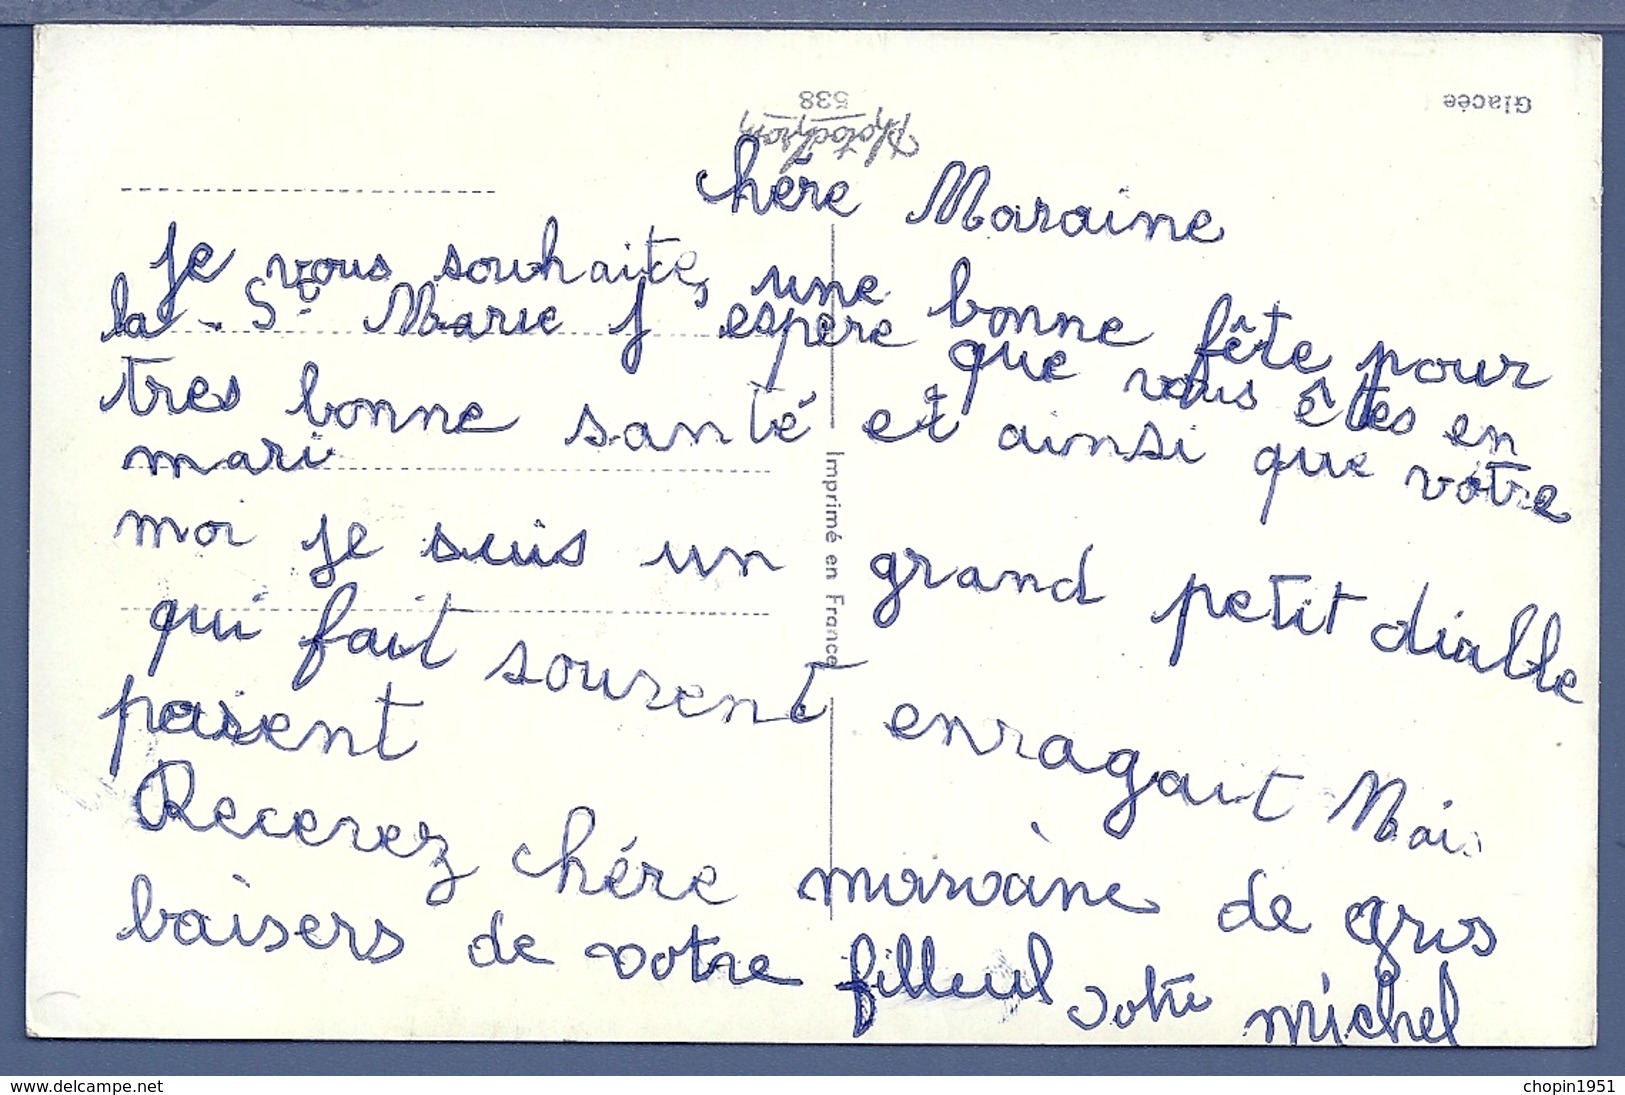 Glacée
538
Photochrom
chére Maraine
Je vous souhaite, une bonne fête pour
la Ste Marie J espère que vous êtes en
tres bonne santé et ainsi que votre
mari
moi je suis un grand petit diable
qui fait souvent enragait
Recevez chére maraine de gros
baisers de votre filleul votre michel
Imprimé en France
delcampe.net
chopin1951